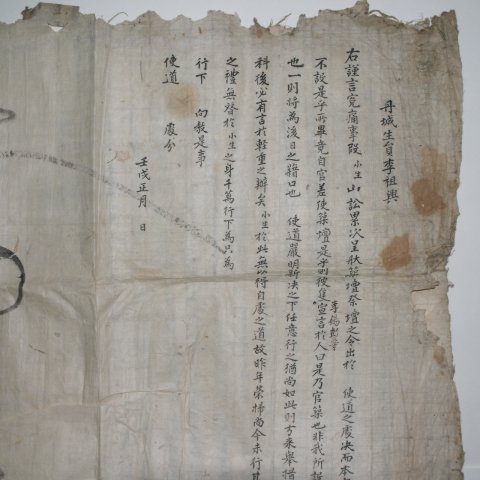 丹城生員李祖興
右謹言寃痛事段小生山訟累次呈狀築壇祭壇之令出於 使道之處決而本
不設是乎所畢竟自官差使築壇是乎則彼隻李錫彭等宣言於人曰是乃官築也非我所設
也一則將為後日之藉口也 使道嚴明斷決之下任意行之猶尚如此則方來舉措
科後必有言於輕重之辦矣小生於此無以得自處之道故昨年榮掃尚今未行其
之禮無替於小生之身千萬行下為只為
行下 向教是事
使道 處分
壬戌正月 日